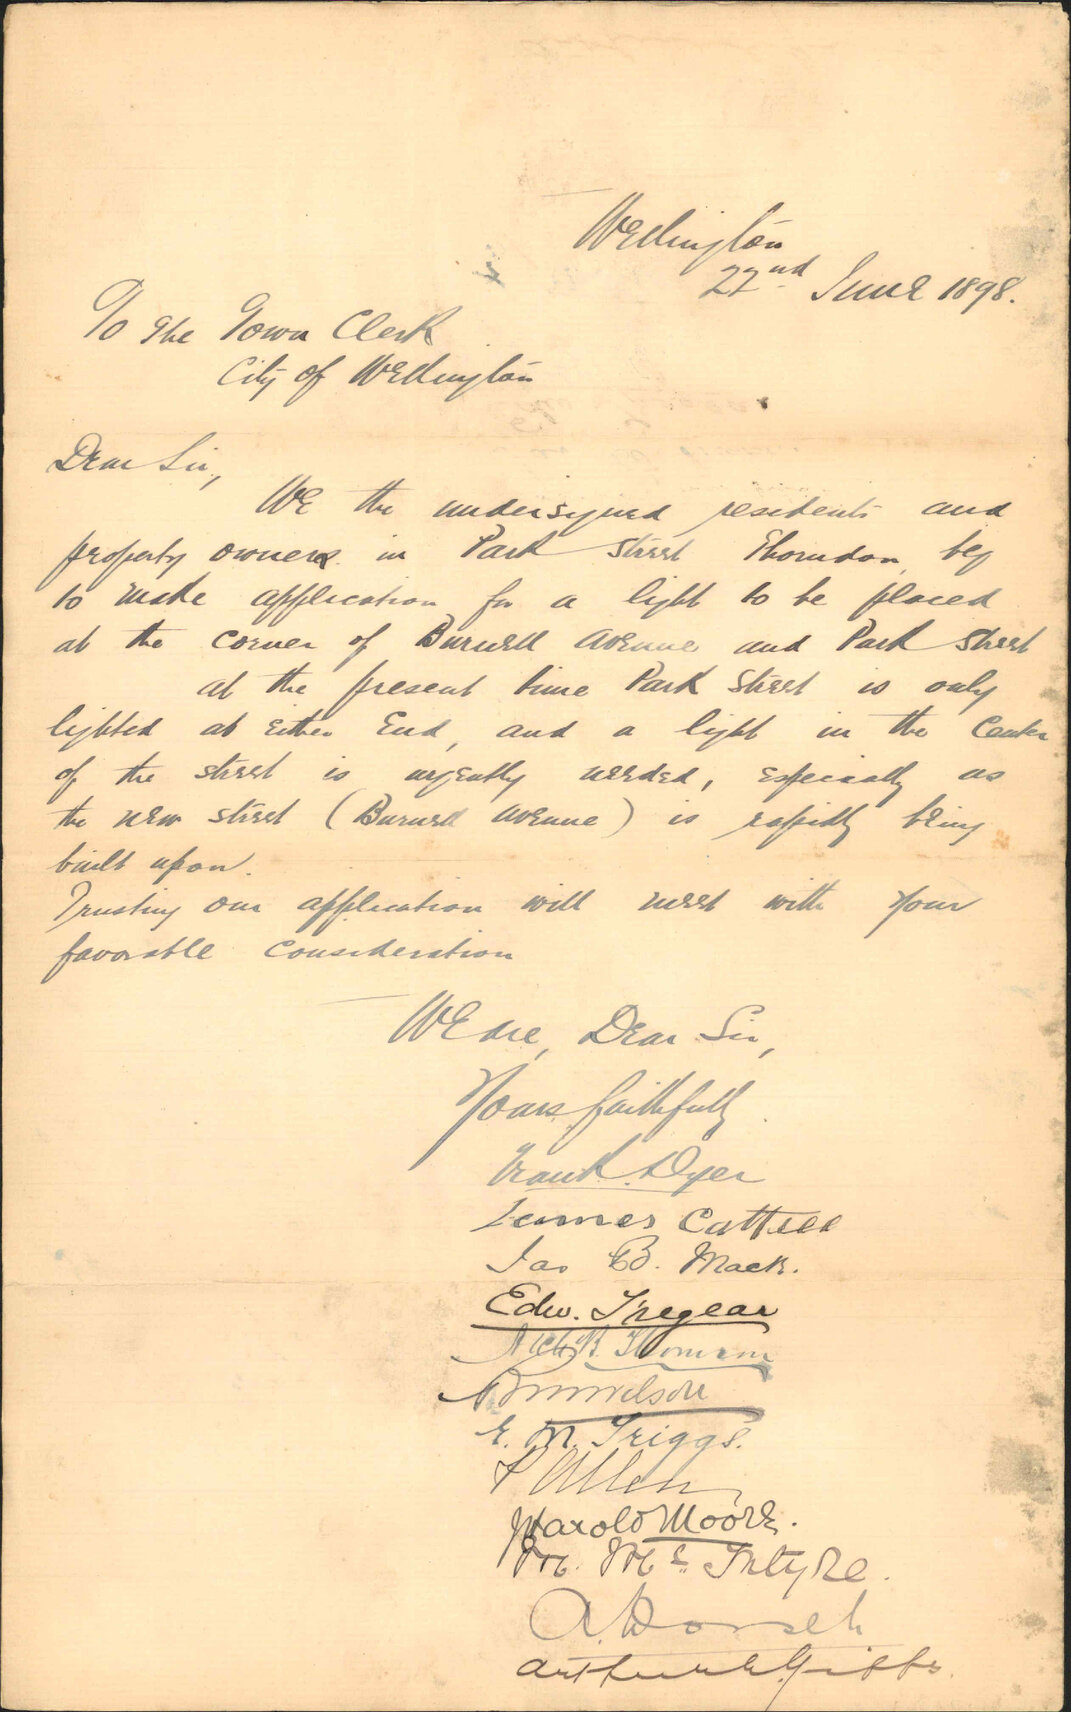 Wellington
22nd June 1898.
To the Town Clerk
City of Wellington
Dear Sir,
We the undersigned residents and
property owners in Park Street Thorndon, beg
to make application for a light to be placed
at the corner of Burnell Avenue and Park Street
at the present time Park Street is only
lighted at either End, and a light in the Center
of the street is urgently needed, especially as
the new street (Burnell Avenue) is rapidly being
built upon.
Trusting our application will meet with your
favorable consideration
We are, Dear Sir,
Yours faithfully
Frank Dyer
James Cattell
Jas B. Mack.
Edw. Tregear
Wilson
E. M. Triggs.
Allen
Harold Moore.
Mc Intyre.
A.
Arthur E. Gibbs.